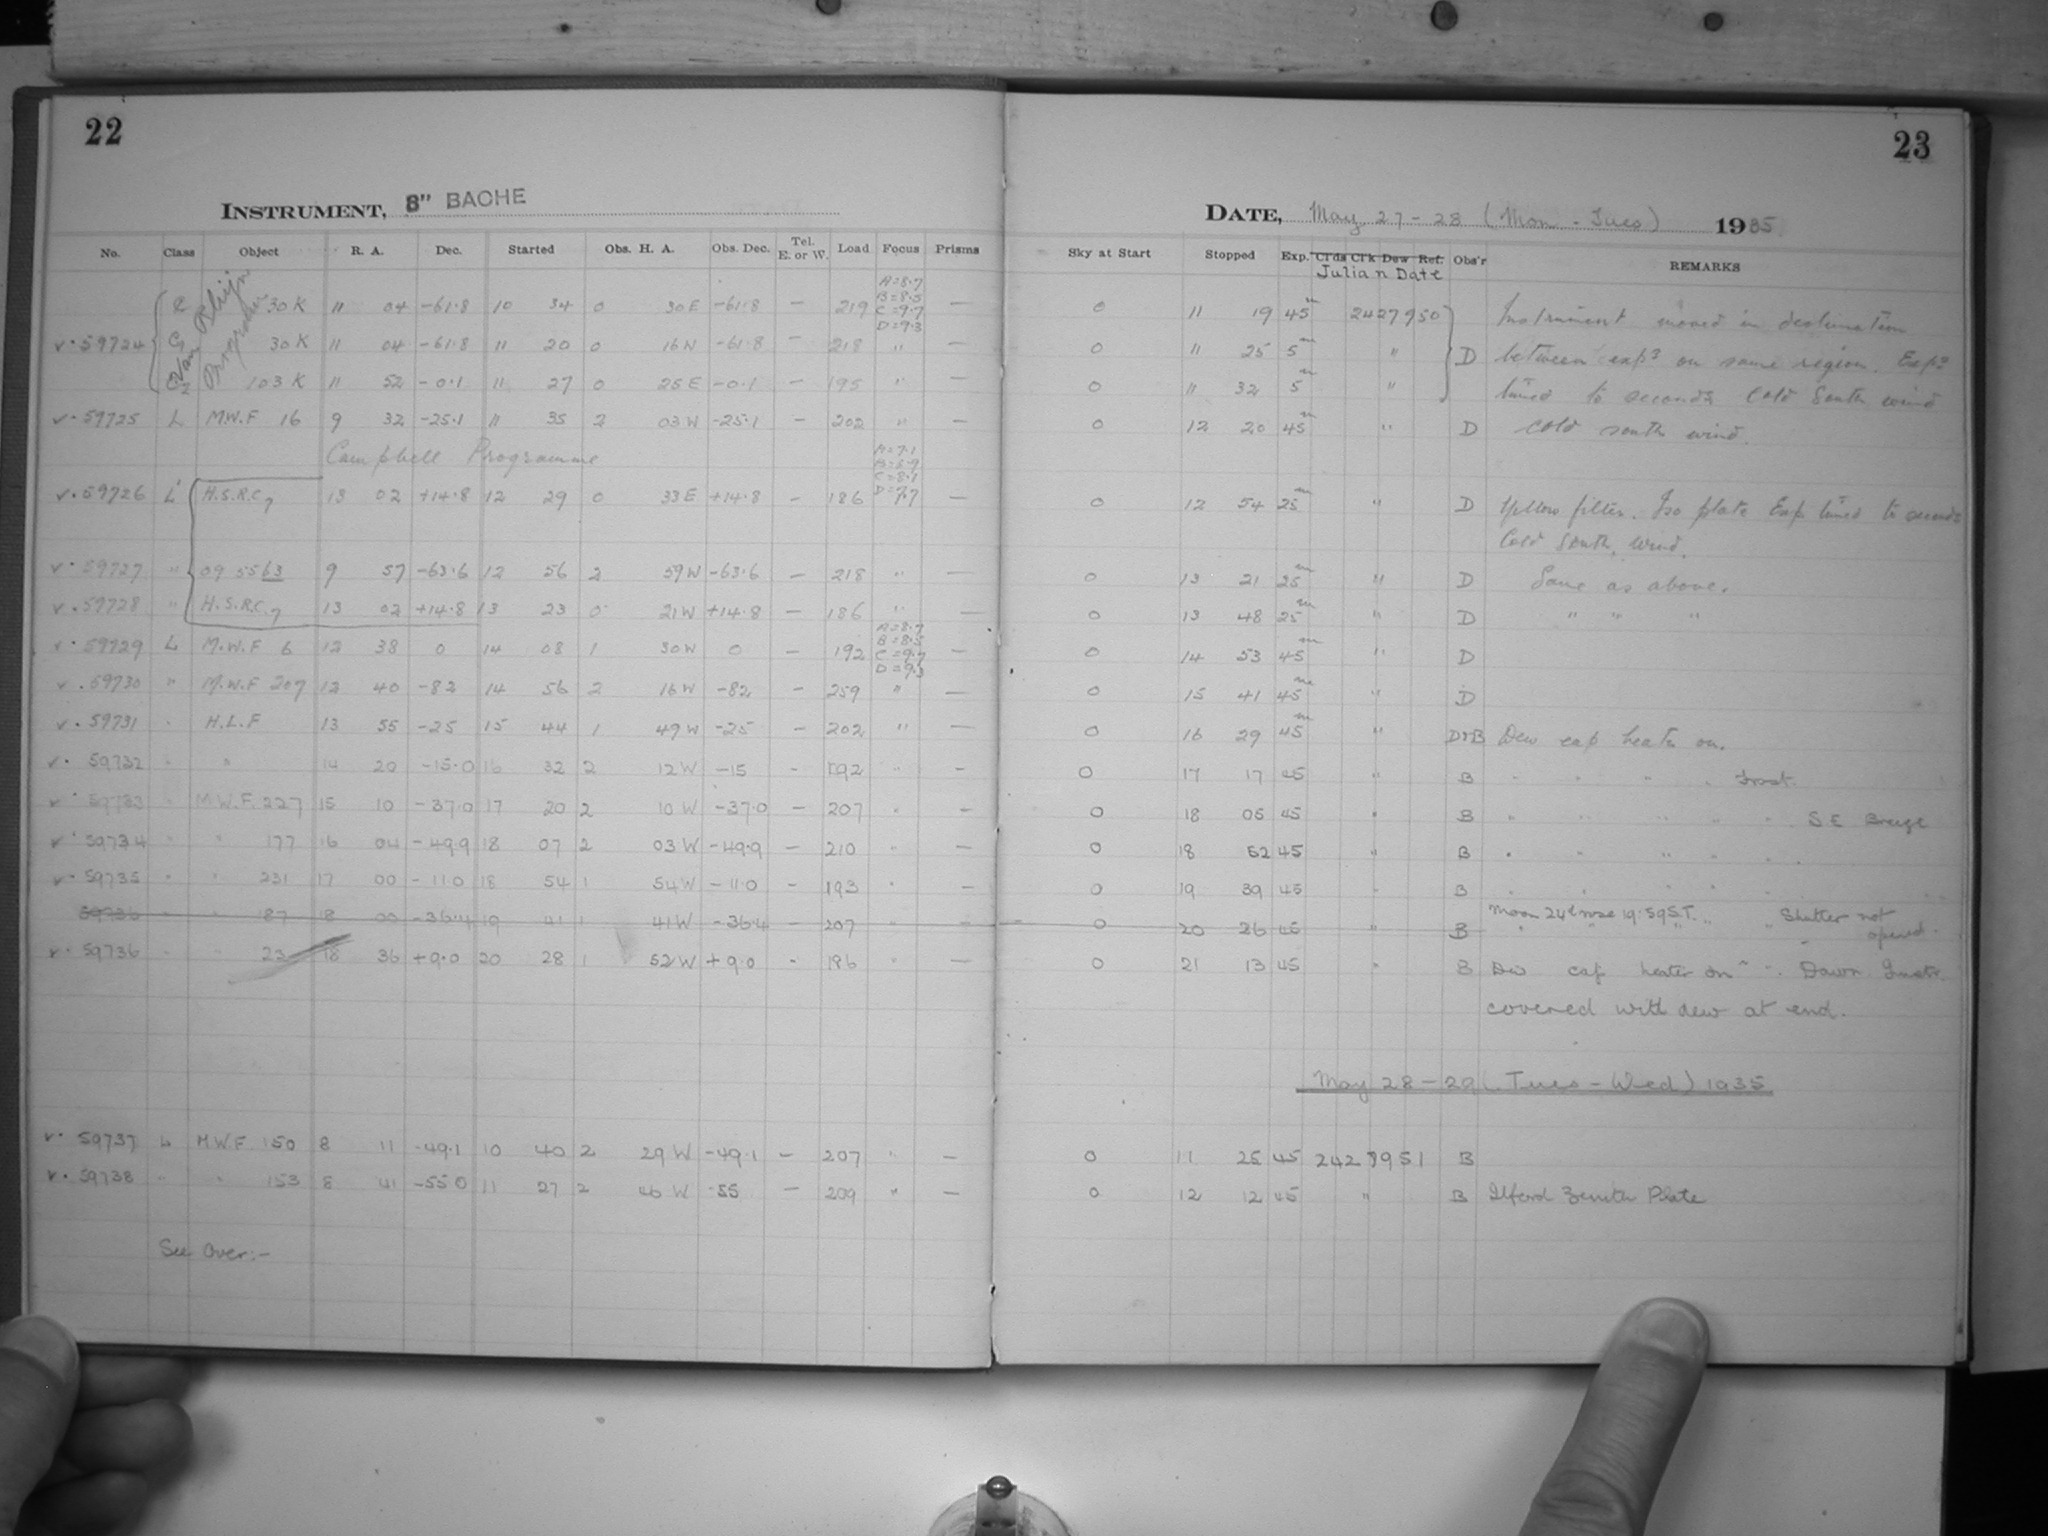 22
INSTRUMENT, 8" BACHE
No. Class Object R. A. Dec. Started Obs. H. A. Obs. Dec. Tel. E. or W. Load Focus Prisms
Van Bligh Programme
A=8.7
B=8.5
C=9.7
D=9.3
30 K 11 04 -61.8 10 34 0 30 E -61.8 — 219 —
v. 59724 30 K 11 04 -61.8 11 20 0 16 W -61.8 — 218 " —
103 K 11 52 -0.1 11 27 0 25 E -0.1 — 195 " —
v. 59725 L M.W.F 16 9 32 -25.1 11 35 2 03 W -25.1 — 202 " —
Campbell Programme
A=7.1
B=6.9
C=8.1
D=7.7
v. 59726 L' H.S.R.C7 13 02 +14.8 12 29 0 33 E +14.8 - 186 —
v. 59727 " 09 5563 9 57 -63.6 12 56 2 59 W -63.6 — 218 " —
v. 59728 " H.S.R.C.7 13 02 +14.8 13 23 0 21 W +14.8 — 186 " —
A=8.7
B=8.5
C=9.7
D=9.3
v. 59729 L M.W.F 6 12 38 0 14 08 1 30 W 0 — 192 —
v. 59730 " M.W.F 207 12 40 -82 14 56 2 16 W -82 — 259 " —
v. 59731 " H.L.F 13 55 -25 15 44 1 49 W -25 — 202 " —
v. 59732 " " 14 20 -15.0 16 32 2 12 W -15 - 192 " —
v. 59733 " M.W.F. 227 15 10 -37.0 17 20 2 10 W -37.0 — 207 " —
v. 59734 " " 177 16 04 -49.9 18 07 2 03 W -49.9 — 210 " —
v. 59735 " " 231 17 00 -11.0 18 54 1 54 W -11.0 - 193 " —
59736 " " 187 18 00 -36.4 19 41 1 41 W -36.4 — 207 " —
v. 59736 " " 23 18 36 +9.0 20 28 1 52 W +9.0 - 186 " —
v. 59737 L M.W.F. 150 8 11 -49.1 10 40 2 29 W -49.1 — 207 " —
v. 59738 " " 153 8 41 -55 0 11 27 2 46 W -55 — 209 " —
See Over:-
23
DATE, May 27-28 (Mon - Tues) 1935
Sky at Start Stopped Exp. Clds Clk Dew Ref. Obs'r REMARKS
Julian Date
0 11 19 45m 2427950 Instrument moved in declination
0 11 25 5m " D between exps on same region. Exps
0 11 32 5m " timed to seconds Cold South wind
0 12 20 45m " D Cold south wind.
0 12 54 25m " D Yellow filter. Iso plate Exp timed to seconds
Cold South, Wind.
0 13 21 25m " D Same as above.
0 13 48 25m " D " " "
0 14 53 45m " D
0 15 41 45m " D
0 16 29 45m " D&B Dew cap heater on.
0 17 17 45 " B " " " " Frost.
0 18 05 45 " B " " " " " S E Breeze
0 18 52 45 " B " " " " "
0 19 39 45 " B " " " " "
Moon 24th rose 19:59 S.T.
0 20 26 45 " B " " " " Shutter not opened.
0 21 13 45 " B Dew cap heater on " ". Dawn. Instr.
covered with dew at end.
May 28-29 (Tues - Wed) 1935
0 11 25 45 2427951 B
0 12 12 45 " B Ilford Zenith Plate